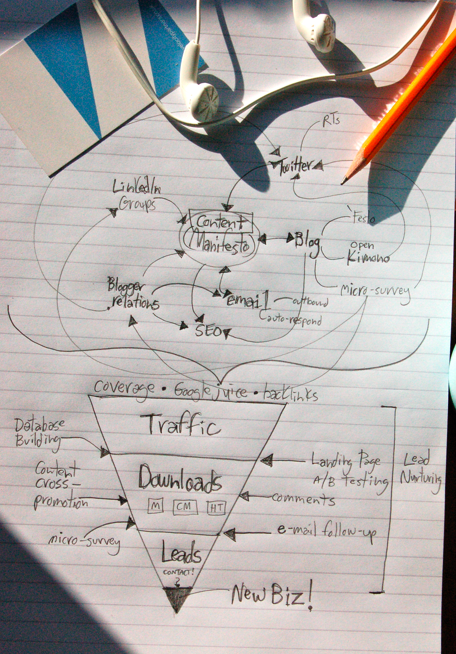 RTs
Twitter
LinkedIn
Groups
Content
Manifesto
Blog
Festo
Open
Kimono
micro-survey
Blogger
relations
email
outbound
auto-respond
SEO
coverage • Google juice • backlinks
Traffic
Database
Building
Downloads
Landing Page
A/B Testing
Lead
Nurturing
Content
cross-
promotion
M CM HT
comments
micro-survey
e-mail follow-up
Leads
CONTACT!
New Biz!